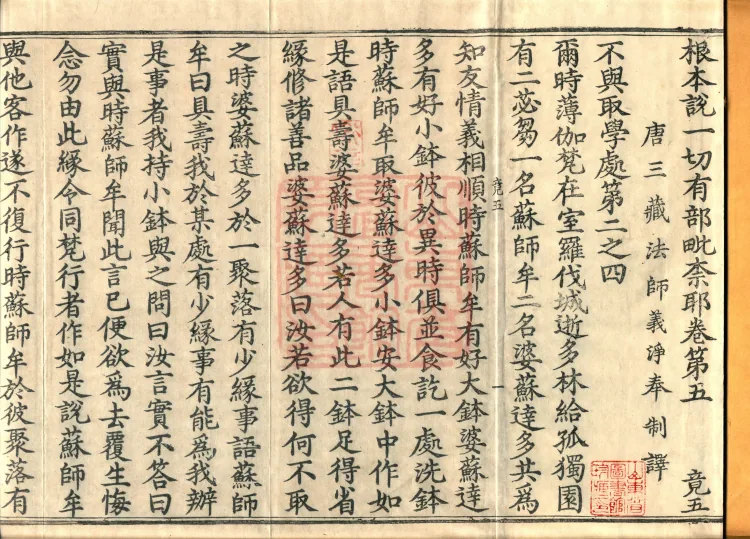 根本說一切有部毗柰耶卷第五 竟五
唐三藏法師義淨奉制譯
不與取學處第二之四
爾時薄伽梵在室羅伐城逝多林給孤獨園
有二苾芻一名蘇師牟二名婆蘇達多共為
竟五 一
知友情義相順時蘇師牟有好大鉢婆蘇達
多有好小鉢彼於異時俱並食訖一處洗鉢
時蘇師牟取婆蘇達多小鉢安大鉢中作如
是語具壽婆蘇達多若人有此二鉢足得省
緣修諸善品婆蘇達多曰汝若欲得何不取
之時婆蘇達多於一聚落有少緣事語蘇師
牟曰具壽我於某處有少緣事有能為我辦
是事者我持小鉢與之問曰汝言實不答曰
實與時蘇師牟聞此言已便欲為去覆生悔
念勿由此緣令同梵行者作如是說蘇師牟
與他客作遂不復行時蘇師牟於彼聚落有